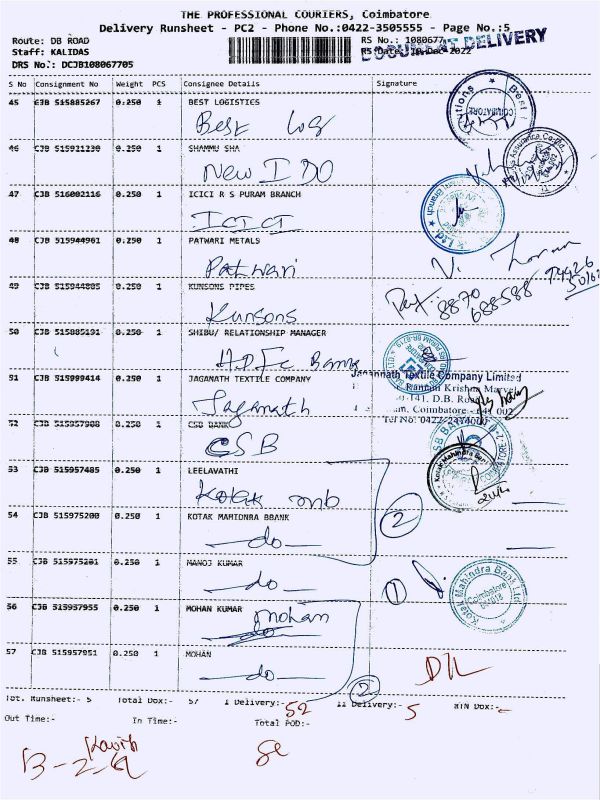 THE PROFESSIONAL COURIERS, Coimbatore
Delivery Runsheet - PC2 - Phone No.:0422-3505555 - Page No.:5
Route: DB ROAD
RS No.: 1080677
DOCUMENT DELIVERY
Staff: KALIDAS
RS Date: 10-Dec-2022
DRS No.: DCJB108067705
S No Consignment No Weight PCS Consignee Details Signature
45 CJB 515885267 0.250 1 BEST LOGISTICS
Best Log
46 CJB 515921230 0.250 1 SHAMMU SHA
New IDO
47 CJB 516002116 0.250 1 ICICI R S PURAM BRANCH
ICICI
48 CJB 515944961 0.250 1 PATWARI METALS
Patwari
49 CJB 515944805 0.250 1 KUNSONS PIPES
Kunsons
8870
688588
50 CJB 515885191 0.250 1 SHIBU/ RELATIONSHIP MANAGER
HDFC Bank
51 CJB 515999414 0.250 1 JAGANATH TEXTILE COMPANY
Jaganath
Jagannath Textile Company Limited
Raman Krishna Marvel
141, D.B. Road
Coimbatore - 641 002
Tel No: 0422-2474000
52 CJB 515957908 0.250 1 CSB BANK
CSB
53 CJB 515957485 0.250 1 LEELAVATHI
Kotak mb
Kotak Mahindra Bank
54 CJB 515975200 0.250 1 KOTAK MAHIONRA BBANK
do
2
55 CJB 515975201 0.250 1 MANOJ KUMAR
do
1
Kotak Mahindra Bank Ltd
Coimbatore
641018
56 CJB 515957955 0.250 1 MOHAN KUMAR
mohan
do
57 CJB 515957951 0.250 1 MOHAN
do
2
DIL
Tot. Runsheet:- 5 Total Dox:- 57 I Delivery:- 52 II Delivery:- 5 RTN Dox:-
Out Time:- In Time:- Total POD:-